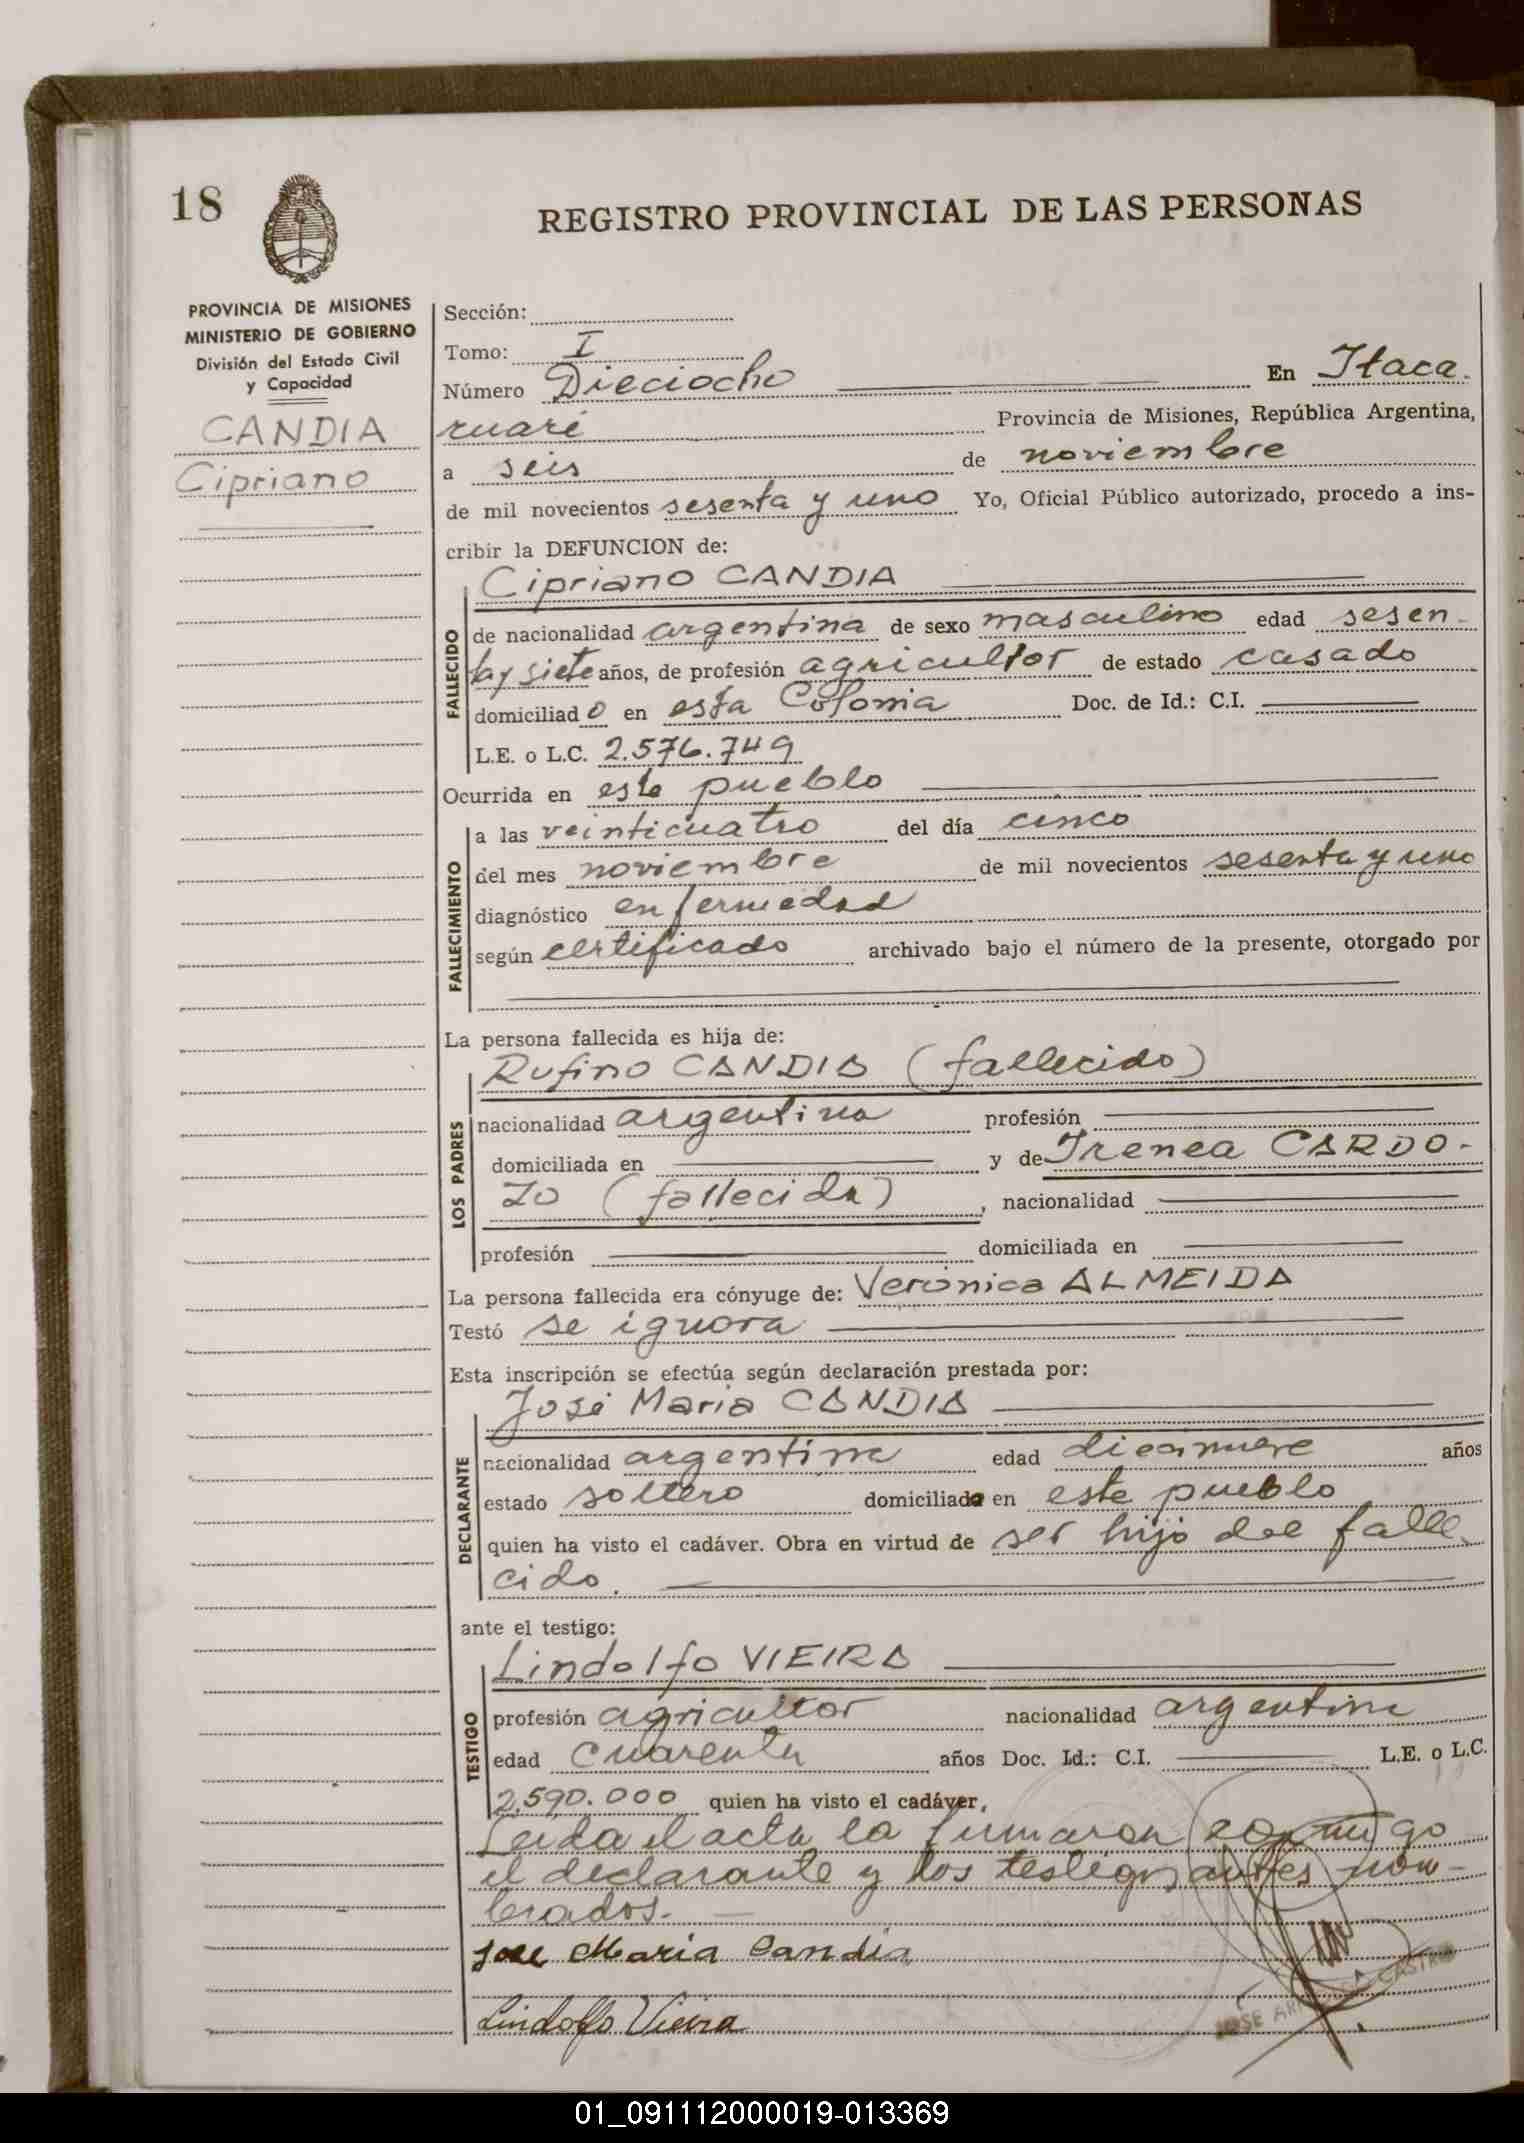 18
REGISTRO PROVINCIAL DE LAS PERSONAS
PROVINCIA DE MISIONES
MINISTERIO DE GOBIERNO
División del Estado Civil
y Capacidad
CANDIA
Cipriano
Sección:
Tomo: I
Número Dieciocho En Itaca-
ruaré Provincia de Misiones, República Argentina,
a seis de noviembre
de mil novecientos sesenta y uno Yo, Oficial Público autorizado, procedo a ins-
cribir la DEFUNCION de:
Cipriano CANDIA
FALLECIDO
de nacionalidad argentina de sexo masculino edad sesen-
ta y siete años, de profesión agricultor de estado casado
domiciliado en esta Colonia Doc. de Id.: C.I.
L.E. o L.C. 2.576.749
Ocurrida en este pueblo
FALLECIMIENTO
a las veinticuatro del día cinco
del mes noviembre de mil novecientos sesenta y uno
diagnóstico enfermedad
según certificado archivado bajo el número de la presente, otorgado por
La persona fallecida es hija de:
Rufino CANDIA (fallecido)
LOS PADRES
nacionalidad argentina profesión
domiciliada en y de Irenea CARDO-
ZO (fallecida), nacionalidad
profesión domiciliada en
La persona fallecida era cónyuge de: Verónica ALMEIDA
Testó se ignora
Esta inscripción se efectúa según declaración prestada por:
José Maria CANDIA
DECLARANTE
nacionalidad argentina edad diecinueve años
estado soltero domiciliado en este pueblo
quien ha visto el cadáver. Obra en virtud de ser hijo del falle-
cido.
ante el testigo:
Lindolfo VIEIRA
TESTIGO
profesión agricultor nacionalidad argentina
edad cuarenta años Doc. Id.: C.I. L.E. o L.C.
2.590.000 quien ha visto el cadáver,
Leida el acta la firmaron conmigo
el declarante y los testigos antes nom-
brados.-
Jose Maria Candia
Lindolfo Vieira
JOSE CASTRO
01_091112000019-013369